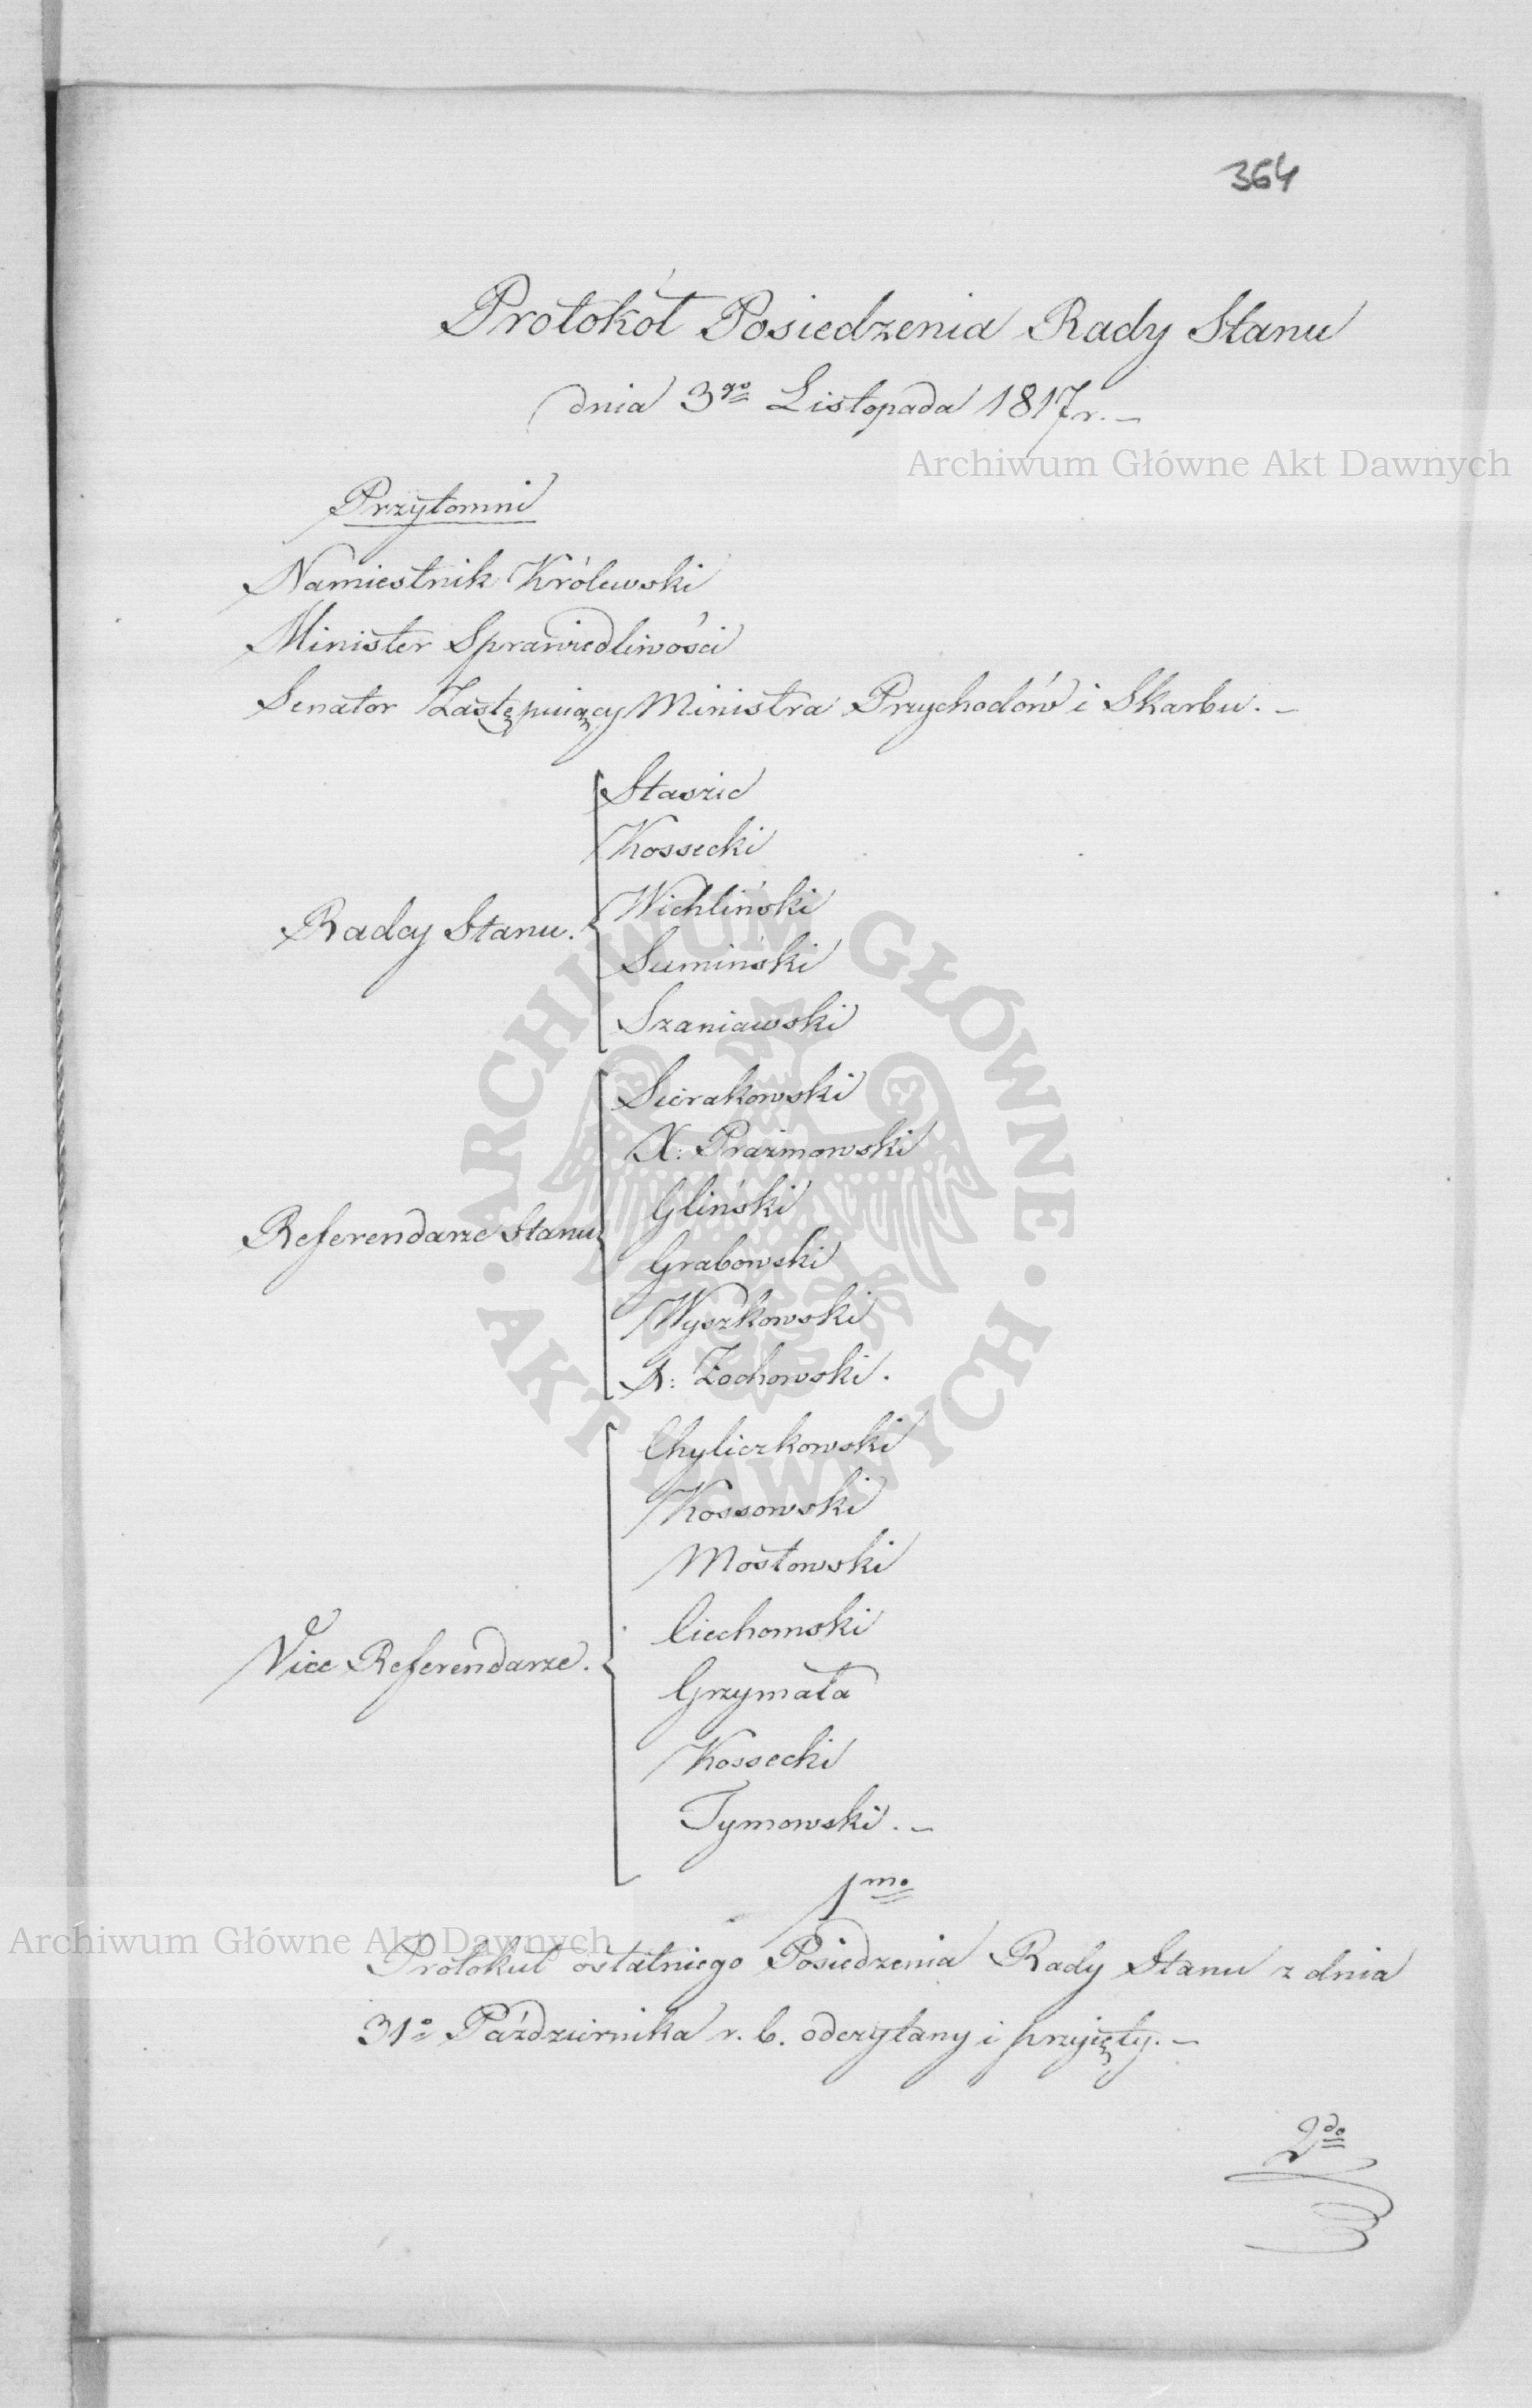 364
Protokół Posiedzenia Rady Stanu
dnia 3go Listopada 1817 r. –
Archiwum Główne Akt Dawnych
Przytomni
Namiestnik Królewski
Minister Sprawiedliwości
Senator Zastępuiący Ministra Przychodów i Skarbu. –
Staszic
Kossecki
Radcy Stanu.
Wichliński
Sumiński
Szaniawski
Sierakowski
X: Prażmowski
Gliński
Referendarze Stanu
Grabowski
Wyszkowski
A: Żochowski.
Chyliczkowski
Kossowski
Mostowski
Ciechomski
Vice Referendarze.
Grzymała
Kossecki
Tymowski. –
ARCHIWUM GŁÓWNE · AKT DAWNYCH ·
1mo
Archiwum Główne Akt Dawnych
Protokuł ostatniego Posiedzenia Rady Stanu z dnia
31o Października r. b. odczytany i przyięty. –
2do